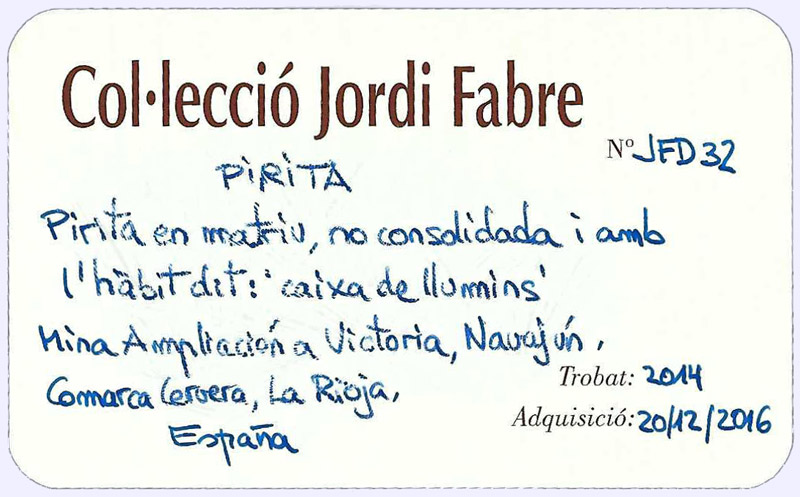 Col·lecció Jordi Fabre
Nº JFD32
PIRITA
Pirita en matriu, no consolidada i amb
l'hàbit dit: 'caixa de llumins'
Mina Ampliación a Victoria, Navajún,
Comarca Cervera, La Rioja,
España
Trobat: 2014
Adquisició: 20/12/2016